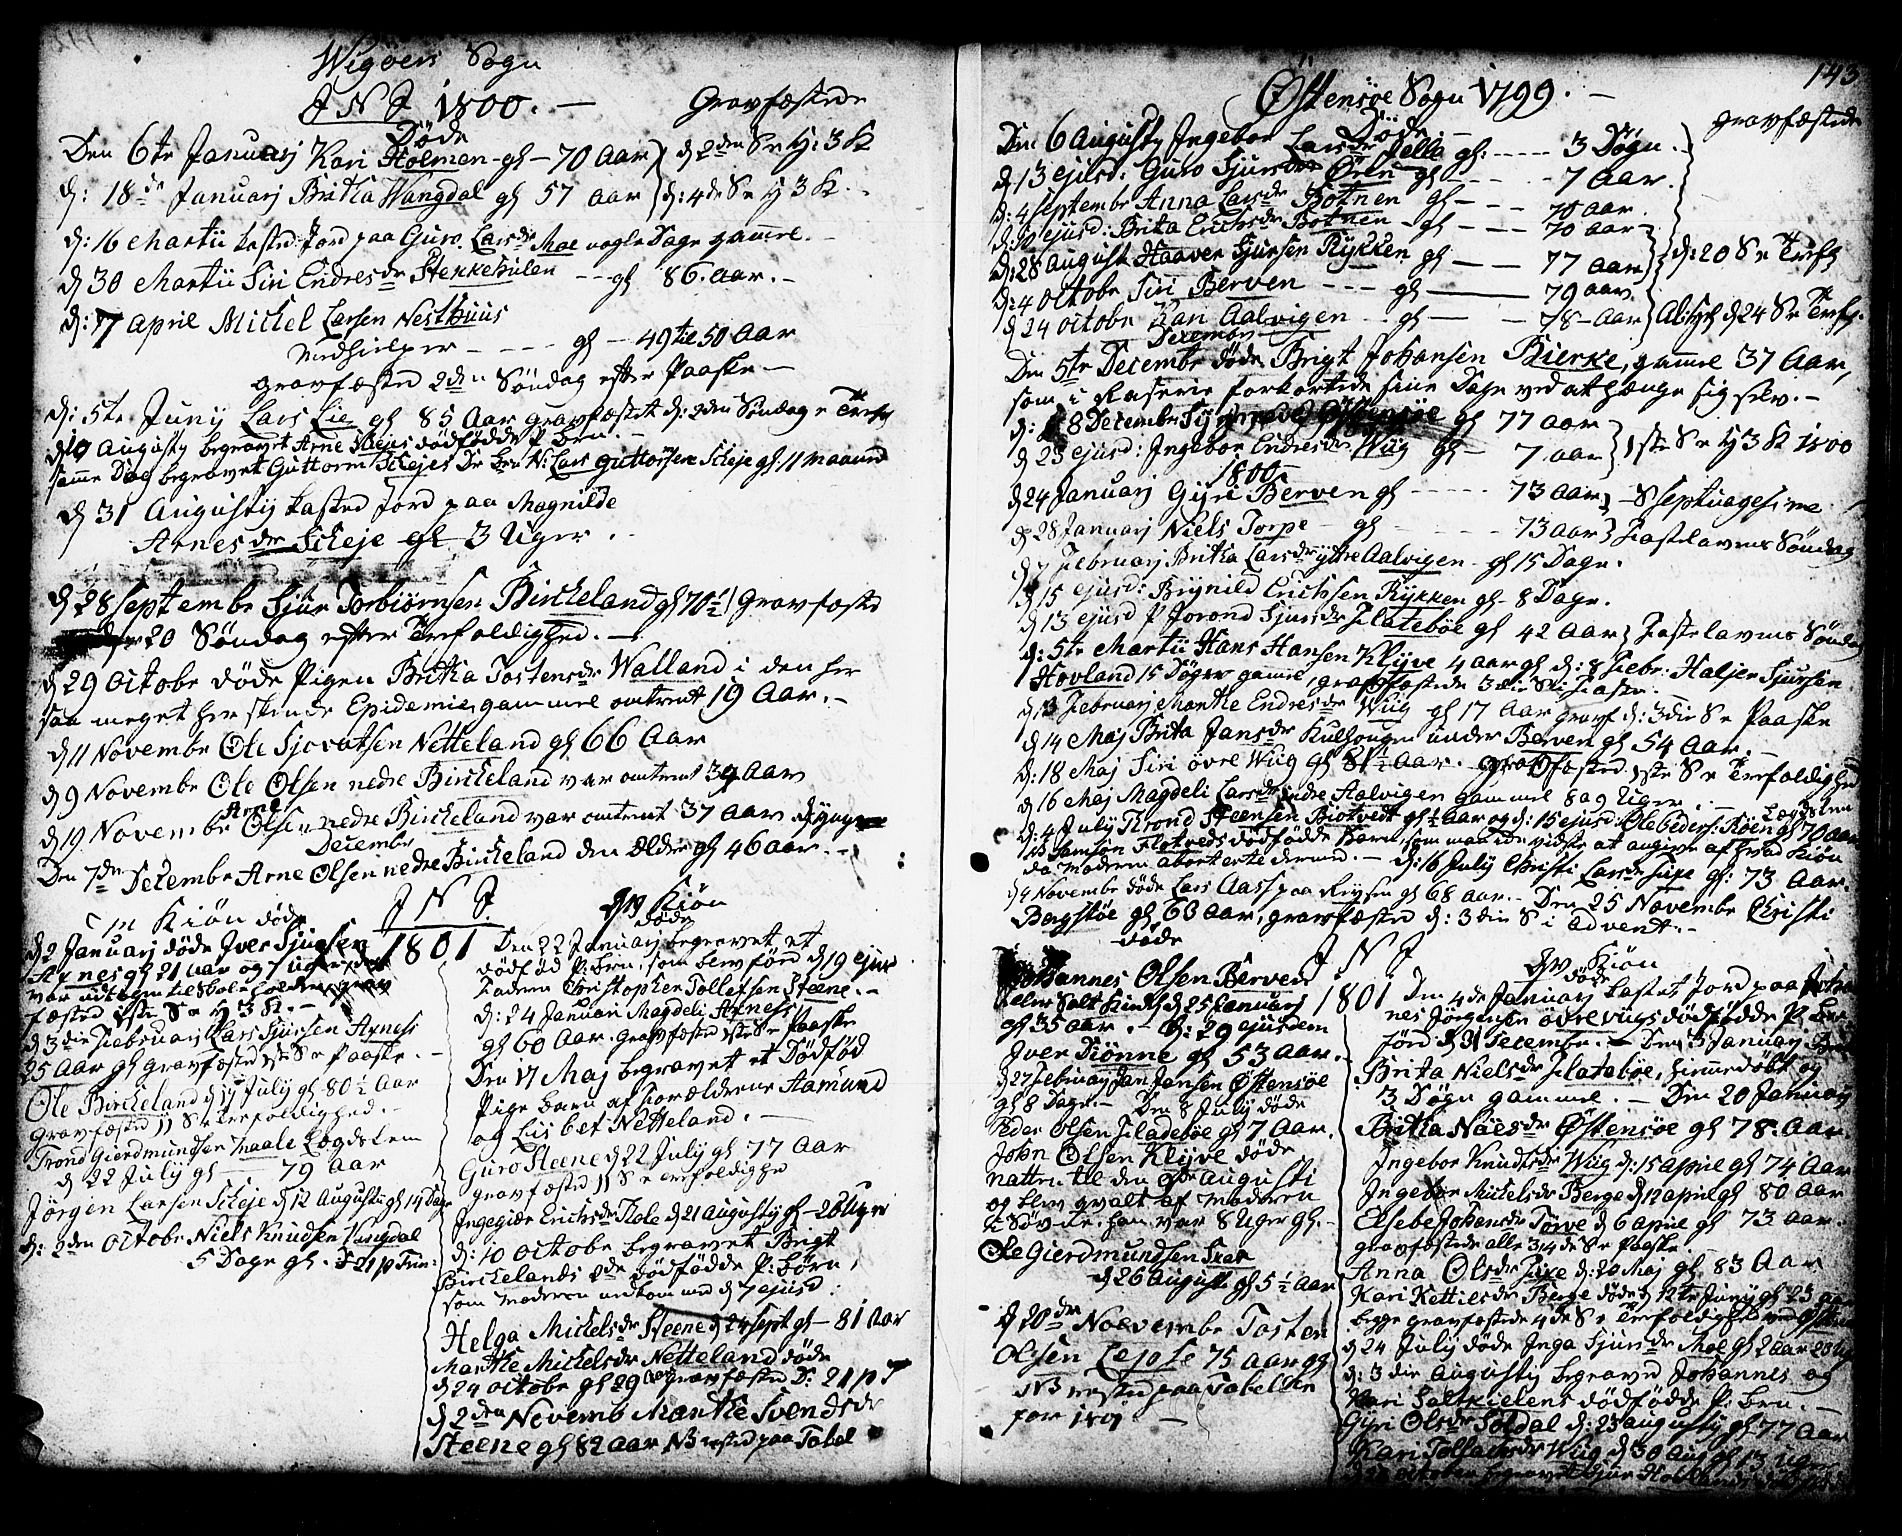 Wigøens Sogn
J N J 1800. — Gravfæstede
Døde
Den 6te Januarj Kari Holmen gl — 70 Aar d: 2den S e H: 3 K
d: 18de Januarj Britha Wangdal gl 57 Aar d: 4de S e H 3 K.
d: 16 Martii kasted Jord paa Guro Larsdr Moe nogle Dage gamel.
d 30 Martii Siri Endresdr Stekkehilen — gl 86. Aar. —
d: 7 April Mickel Larsen Nesthuus
Medhielper — gl — 49 til 50 Aar
gravfæsted 2den Søndag efter Paaske —
d: 5te Junij Lars Lie gl 85 Aar gravfæstet d: 2den Søndag e Trefs
d 10 Augusty begravet Arne dødfødde P. Ben. —
samme Dag begravet Guttorm Schejes Dr. Ben N: Lars Guttorsen Scheje gl: 11 maaned
d 31 Augusty kasted Jord paa Magnilde
Arnesdr Scheje gl 3 Uger.
d 28 Septembe Siur Torbiørnsen Birkeland gl 70½ Gravfæsted
20 Søndag efter Trefoldighed. —
d 29 Octobe døde Pigen Britha Tostensdr Walland i den her
saa meget herskende Epidemie, gammel omtrent 19 Aar. —
d 11 Novembe Ole Sjovatsen Netteland gl 66 Aar
d 9 Novembe Ole Olsen nedre Birkeland var omtrent 39 Aar
d 19 Novembe Arne Olsen nedre Birckeland var omtrent 37 Aar d yngre
December
Den 7de Decembe Arne Olsen nedre Birckeland den Ældre gl 46 aar. —
J N J
1801
M Kiøn døde
d 2 Januarj døde Iver Sjursen
Axnes gl 21 Aar og 7 Uger, der
var udtagen til Skoleholder, grav
fæsted 1ste S e H 3 K. —
d 3die Februarj Lars Sjursen Axness
25 Aar gl gravfæsted 1ste S e Paaske. —
Ole Birckeland d 17 July gl 80½ Aar
gravfæsted 11 S e trefoldighed. —
Trond Gierdmundsen Maale Lægdslem
d 22 July gl — 79 Aar
Jørgen Larsen Scheje d 12 Augusti gl 14 Dage
d: 2den Octobe Niels Knudsen Vangdal
5 Dage gl. D 21 p Trin:
Qv Kiøn
døde
Den 22 Januarj begravet et
dødfød P: Brn, som blev førd d 19 ejus
Faderen Christopher Tollefsen Steene. —
d: 24 Januari Magdeli Axness
gl 60 Aar. Gravfæsted 1ste S e Paaske
Den 17 Maj begravet et Dødfød
Pige barn af Forældrene Aamund
og Lisbet Netteland. —
Guro Steene d 22 July gl 77 Aar
gravfæsted 11 S e trefoldighe
Ingegier Erichsdr Thole d 21 Augusty gl — 26 Uger
d: 10 Octobe begravet Brigt
Birckelands 2de dødfødde P: Børn,
som Moderen nedkom med d 7 ejusd:
Helga Mickelsdr Steene d 24 Sept gl — 81 Aar
Marthe Mickelsdr Netteland døde
d 24 Octobe gl 29 Aar gravfæsted D: 21 p T
d 2den Novemb Marthe Svendsdr
Steene gl 82 Aar NB rested paa Tabel
143
Østensøe Sogn 1799. —
Døde — gravfæstede
Den 6 Augusty Ingebor Larsdr Selle gl: — 3 Døgn.
d 13 ejusd: Guro Sjursdr Øren gl — 7 Aar.
d: 4 Septembe Anna Larsdr Botnen gl — 70 Aar.
d: 10 ejusd: Brita Erichsdr Botnen — gl — 70 Aar
d: 28 August Haaver Sjursen Rykken gl — 77 Aar d: 20 S e Trefs
d: 4 Octobe Siri Berven — gl — 79 Aar.
d 24 Octobe Kari Aalvigen — gl — 78 — Aar d 24 S e Trefs.
December
Den 5te Decembe døde Brigt Johansen Bierke, gammel 37 Aar,
som i Raserie forkortede sine Dage ved at hænge sig selv. —
d: 8 Decembe Østensøe gl 77 Aar
d 23 ejusd: Ingebor Endresdr Wiig gl — 7 Aar 1ste S e H 3 K 1800
1800 —
d 24 Januarj Gyri Berven gl — 73 Aar — S Septuagesime
d 28 Januarj Niels Torpe — gl — 73 Aar Fastelavens Søndag
d 7 Februarj Britha Larsdr ytre Aalvigen — gl 15 Dage.
d 15 ejusd: Brynild Erichsen Rykken gl — 8 Dage.
d 13 ejusd P Jorond Sjursdr Flatebøe gl 42 Aar Fastelavens Søndag
d: 5te Martii Hans Hansen Klyve 4 Aar gl d: 8 Febr. Haljer Sjursen
Hovland 15 Døgn gamel, gravfæstede 3die S i Faste.
d 13 Februarj Marthe Endresdr Wiig gl 17 Aar gravf d: 3die S e Paaske
d 14 Maj Brita Jansdr Kulhougen under Berven gl 54 Aar. —
d: 18 Maj Siri øvre Wiig gl 81½ Aar. gravfæsted 1ste S e Trefoldighed
d 16 Maj Magdeli Larsdr indre Aalvigen gammel 8 a 9 Uger. —
d: 4 July Trond Steensen Biotvedt gl ½ Aar og d: 15 ejusd: Ole Peders: Røen gl 70 Aar Lægdslem
Samson Flotveds dødfødde Barn, som man ide vidste at angive af hvad Kiøn
da Moderen aborterte dermed. — d: 16 July Christi Larsdr Sixe gl: 73 Aar.
d 4 Novembe døde Lars Aass paa Rivsen gl 68 Aar. — Den 25 Novembe Christi
Bergstøe gl 60 Aar, gravfæsted d: 3die S i Advent. —
J N J
1801
døde
Johannes Olsen Berven
eller Saltkield d 25 Januarj
gl 35 Aar. — d: 29 ejusdem
Iver Tiønne gl 53 Aar. —
d 27 Februarj Jan Jansen Østensøe
gl 8 Dage. — Den 8 July døde
Peder Olsen Fladebøe gl 7 Aar.
John Olsen Klyve døde
natten til den Augusti
og blev qvalt af Moderen
i Søvne. han var 8 Uger gl. —
Ole Gierdmundsen Skaar
d 26 Augusti gl 5½ Aar
d 20de Noevembe Tosten
Olsen Lepse 75 Aar gl
NB rested paa Tabellen
for 1801. —
Qv Kiøn
døde
Den 4de Januarj kastet Jord paa Johan
nes Jørgensen øvre Viigs dødfødde P. Ben
førd d 31 Decembe. — Den 3 Januarj
Brita Nielsdr Flatebøe, hiemmedøbt og
3 Døgn gammel. — Den 20 Januarj
Britha Næesdr Østensøe gl 78. Aar.
Ingebor Knudsdr Wiig d: 15 april gl 74 Aar
Ingebor Mickelsdr Berge d 12 april gl 80 Aar
Elsebe Johansdr Torve d 6 april gl 73 Aar.
gravfæstede alle 3 14de S e Paaske.
Anna Olsdr Sixe d: 20 Maj gl. 83 Aar
Kari Kettilsdr Berge døde d 12te Junij gl 23 aar
begge gravfæstede 4de S e Trefoldighed ved Østensøe
d 24 July døde Inga Sjursdr Moe gl 2 Aar 20 Ug
d: 3die Augusty begraved Johannes og
Kari Saltkielens dødfødde P: Brn. —
Gyri Olsdr Soldal d: 23 Augusty gl 77 Aar
Kari Tollachsdr Wiig d 30 Aug gl 13 Uger